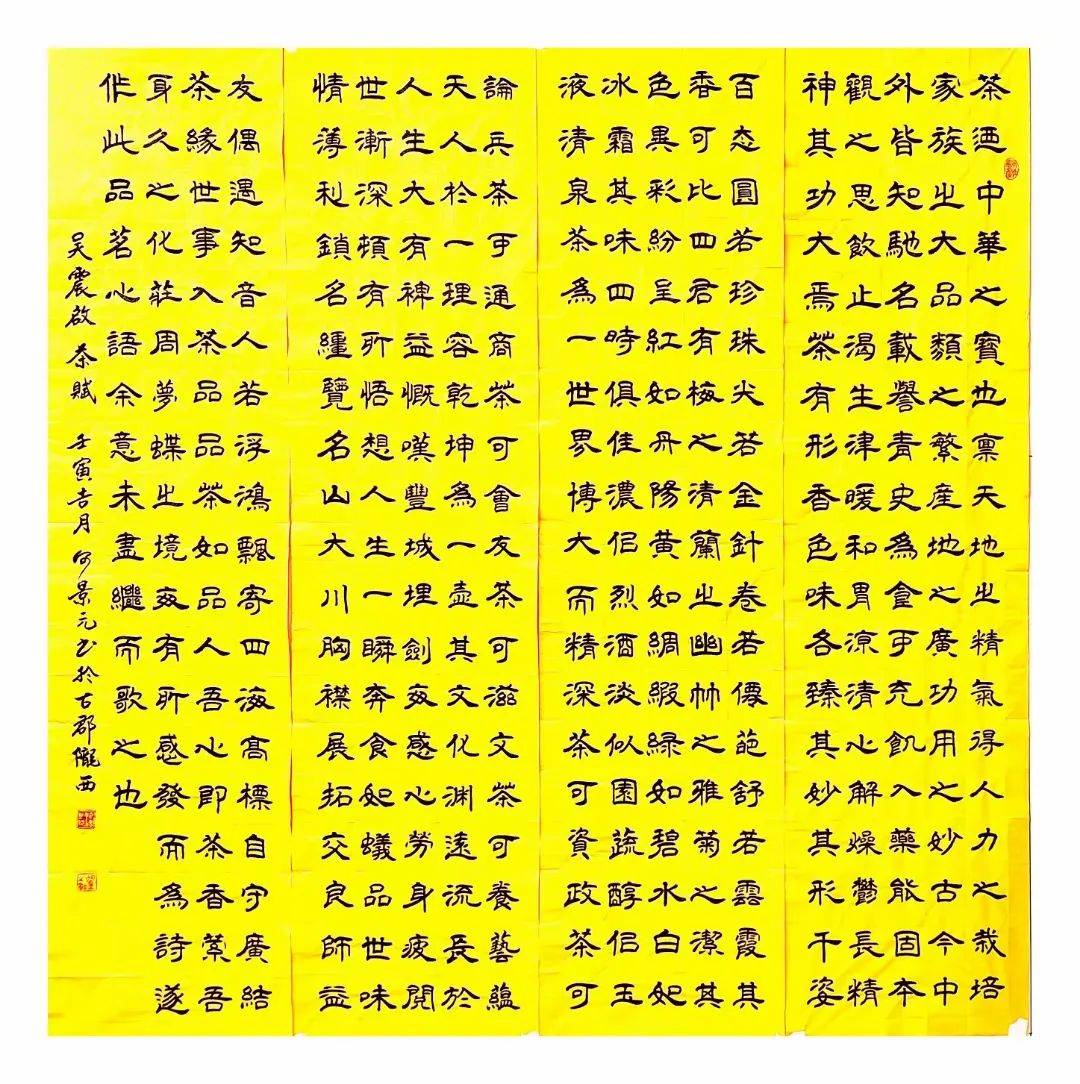 茶迺中華之寶也禀天地之精氣得人力之栽培
家族之大品類之繁産地之廣功用之妙古今中
外皆知馳名載譽青史為食可充飢入藥能固本
觀之思飲止渴生津暖和胃凉清心解燥鬱長精
神其功大焉茶有形香色味各臻其妙其形千姿
百态圓若珍珠尖若金針卷若僊葩舒若雲霞其
香可比四君有梅之清蘭之幽竹之雅菊之潔其
色異彩紛呈紅如丹陽黄如綢緞緑如碧水白如
冰霜其味四時俱佳濃侣烈酒淡似園蔬醇侣玉
液清泉茶為一世界博大而精深茶可資政茶可
論兵茶可通商茶可會友茶可滋文茶可養藝藴
天人於一理容乾坤為一壺其文化渊遠流長於
人生大有裨益慨嘆豐城埋劍每感心勞身疲閲
世漸深頓有所悟想人生一瞬奔食如蟻品世味
情薄利鎖名繮覽名山大川胸襟展拓交良師益
友偶遇知音人若浮鴻飄寄四海高標自守廣結
茶緣世事入茶品品茶如品人吾心即茶香縈吾
身久之化莊周夢蝶之境每有所感發而為詩遂
作此品茗心語余意未盡繼而歌之也
吴震啟 茶賦 壬寅吉月 何景元书於古郡隴西